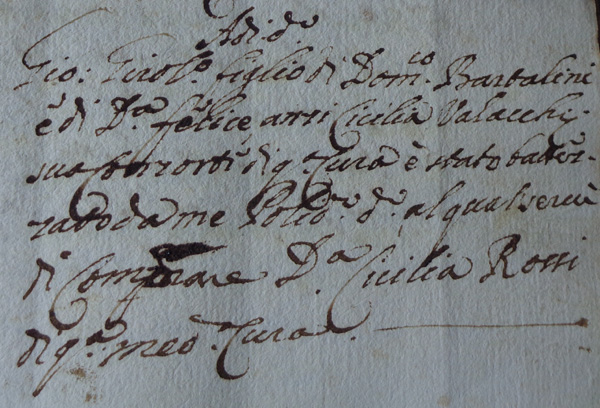 Adi d.o
Gio: Girol.o figlio di Dom.co Bartalini
è di D.a felice anzi Cicilia Valacchi
sua Conzorti di q.a Cura è stato battez-
zato da me Polid.o d.o al qual servì
di Comprare D.a Cicilia Rossi
di q.a med.a Cura.